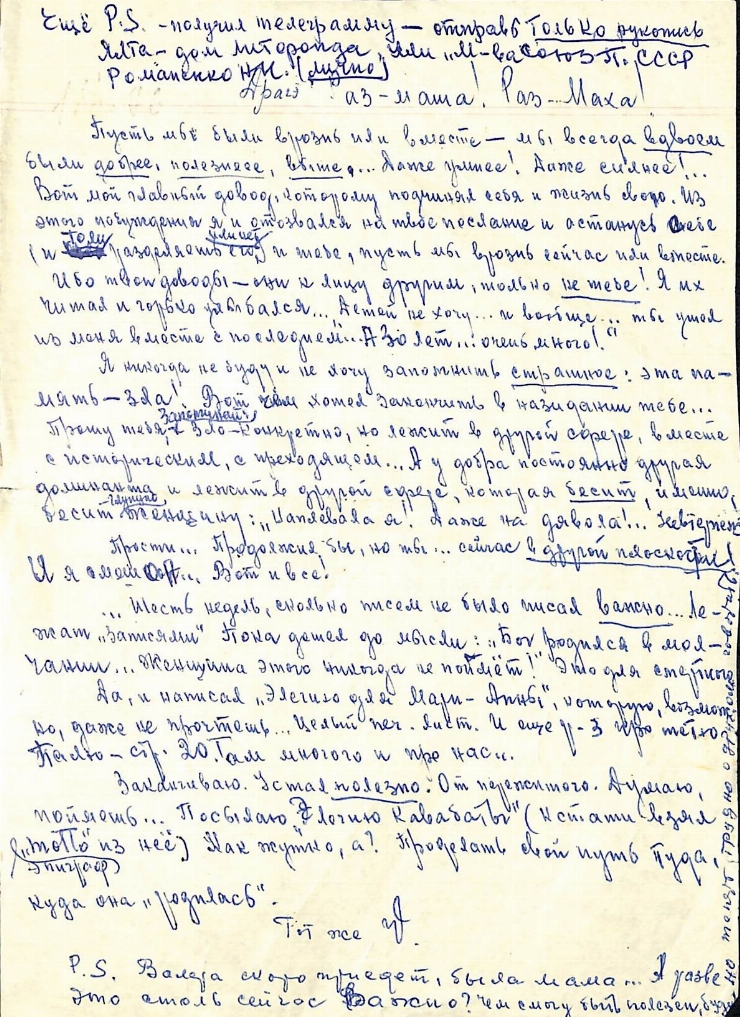 Ещё P.S. - получил телеграмму — отправь только рукопись
Ялта - дом Литфонда, или "М-ва Союз П. СССР
Романенко Н.И. (лично)
Драг аз-маша! Раз-Маха!
Пусть мы были врозь или вместе — мы всегда вдвоем
были добрее, полезнее, выше... Даже умнее! Даже сильнее!...
Вот мой главный довод, которому подчинял себя и жизнь свою. Из
этого побуждения я и отозвался на твое послание и останусь себе
(и и тебе, пусть мы врозь сейчас или вместе.
Ибо твои доводы — они к лицу другим, только не тебе! Я их
читал и горько улыбался... "Детей не хочу... и вообще... ты ушел
из меня вместе с последним"... А 30 лет... очень много!"
Я никогда не буду и не хочу запомнить страшное: эта па-
мять - зла! Вот чем хотел закончить в назидании тебе...
Прошу тебя, Зло - конкретно, но лежит в другой сфере, вместе
с историческим, с преходящем... А у добра постоянно другая
доминанта и лежит в другой сфере, которая бесит, именно,
бесит женщину: "Наплевала я! Даже на дьявола!...
Прости... Продолжил бы, но ты... сейчас в другой плоскости!
И я Вот и все!
... Шесть недель, сколько писем не было писал важно... Ле-
жат "Записями" Пока дошел до мысли: "Бог родился в мол-
чании... Женщина этого никогда не поймёт!" Это для
Да, и написал "Элегию для Мари-Анны", которую, возмож
но, даже не прочтешь... Целый печ. лист. И еще р-з про тетю
Палю — стр. 20. Там многого и про нас..
Заканчиваю. Устал полезно. От пережитого. Думаю,
поймешь... Посылаю Кавабаты" (кстати взял
из неё) Как жутко, а? Проделать свой путь туда,
эпиграф
куда она "родилась".
Тот же
P.S. Валера скоро приедет, была мама... А разве
это столь сейчас Важно? Чем смогу быть полезен, буду